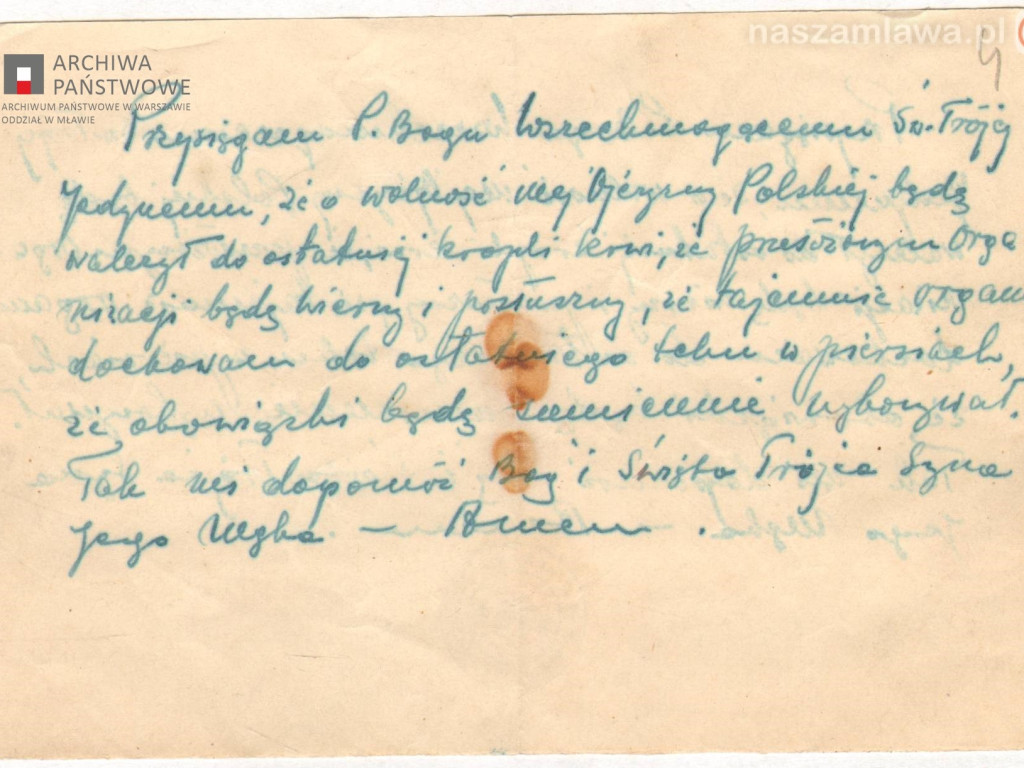 naszamlawa.pl
ARCHIWA
PAŃSTWOWE
ARCHIWUM PAŃSTWOWE W WARSZAWIE
ODDZIAŁ W MŁAWIE
Przysięgam P. Bogu Wszechmogącemu Św. Trójcy
Jedynemu, że o wolność mej Ojczyzny Polskiej będę
walczył do ostatniej kropli krwi, że Orga
nizacji będę wierny i posłuszny, że tajemnic organ
dochowam do ostatniego tchu w piersiach,
że obowiązki będę sumiennie wykonywał.
Tak mi dopomóż Bóg i Święta Trójca Syna
Jego Męka — Amen.